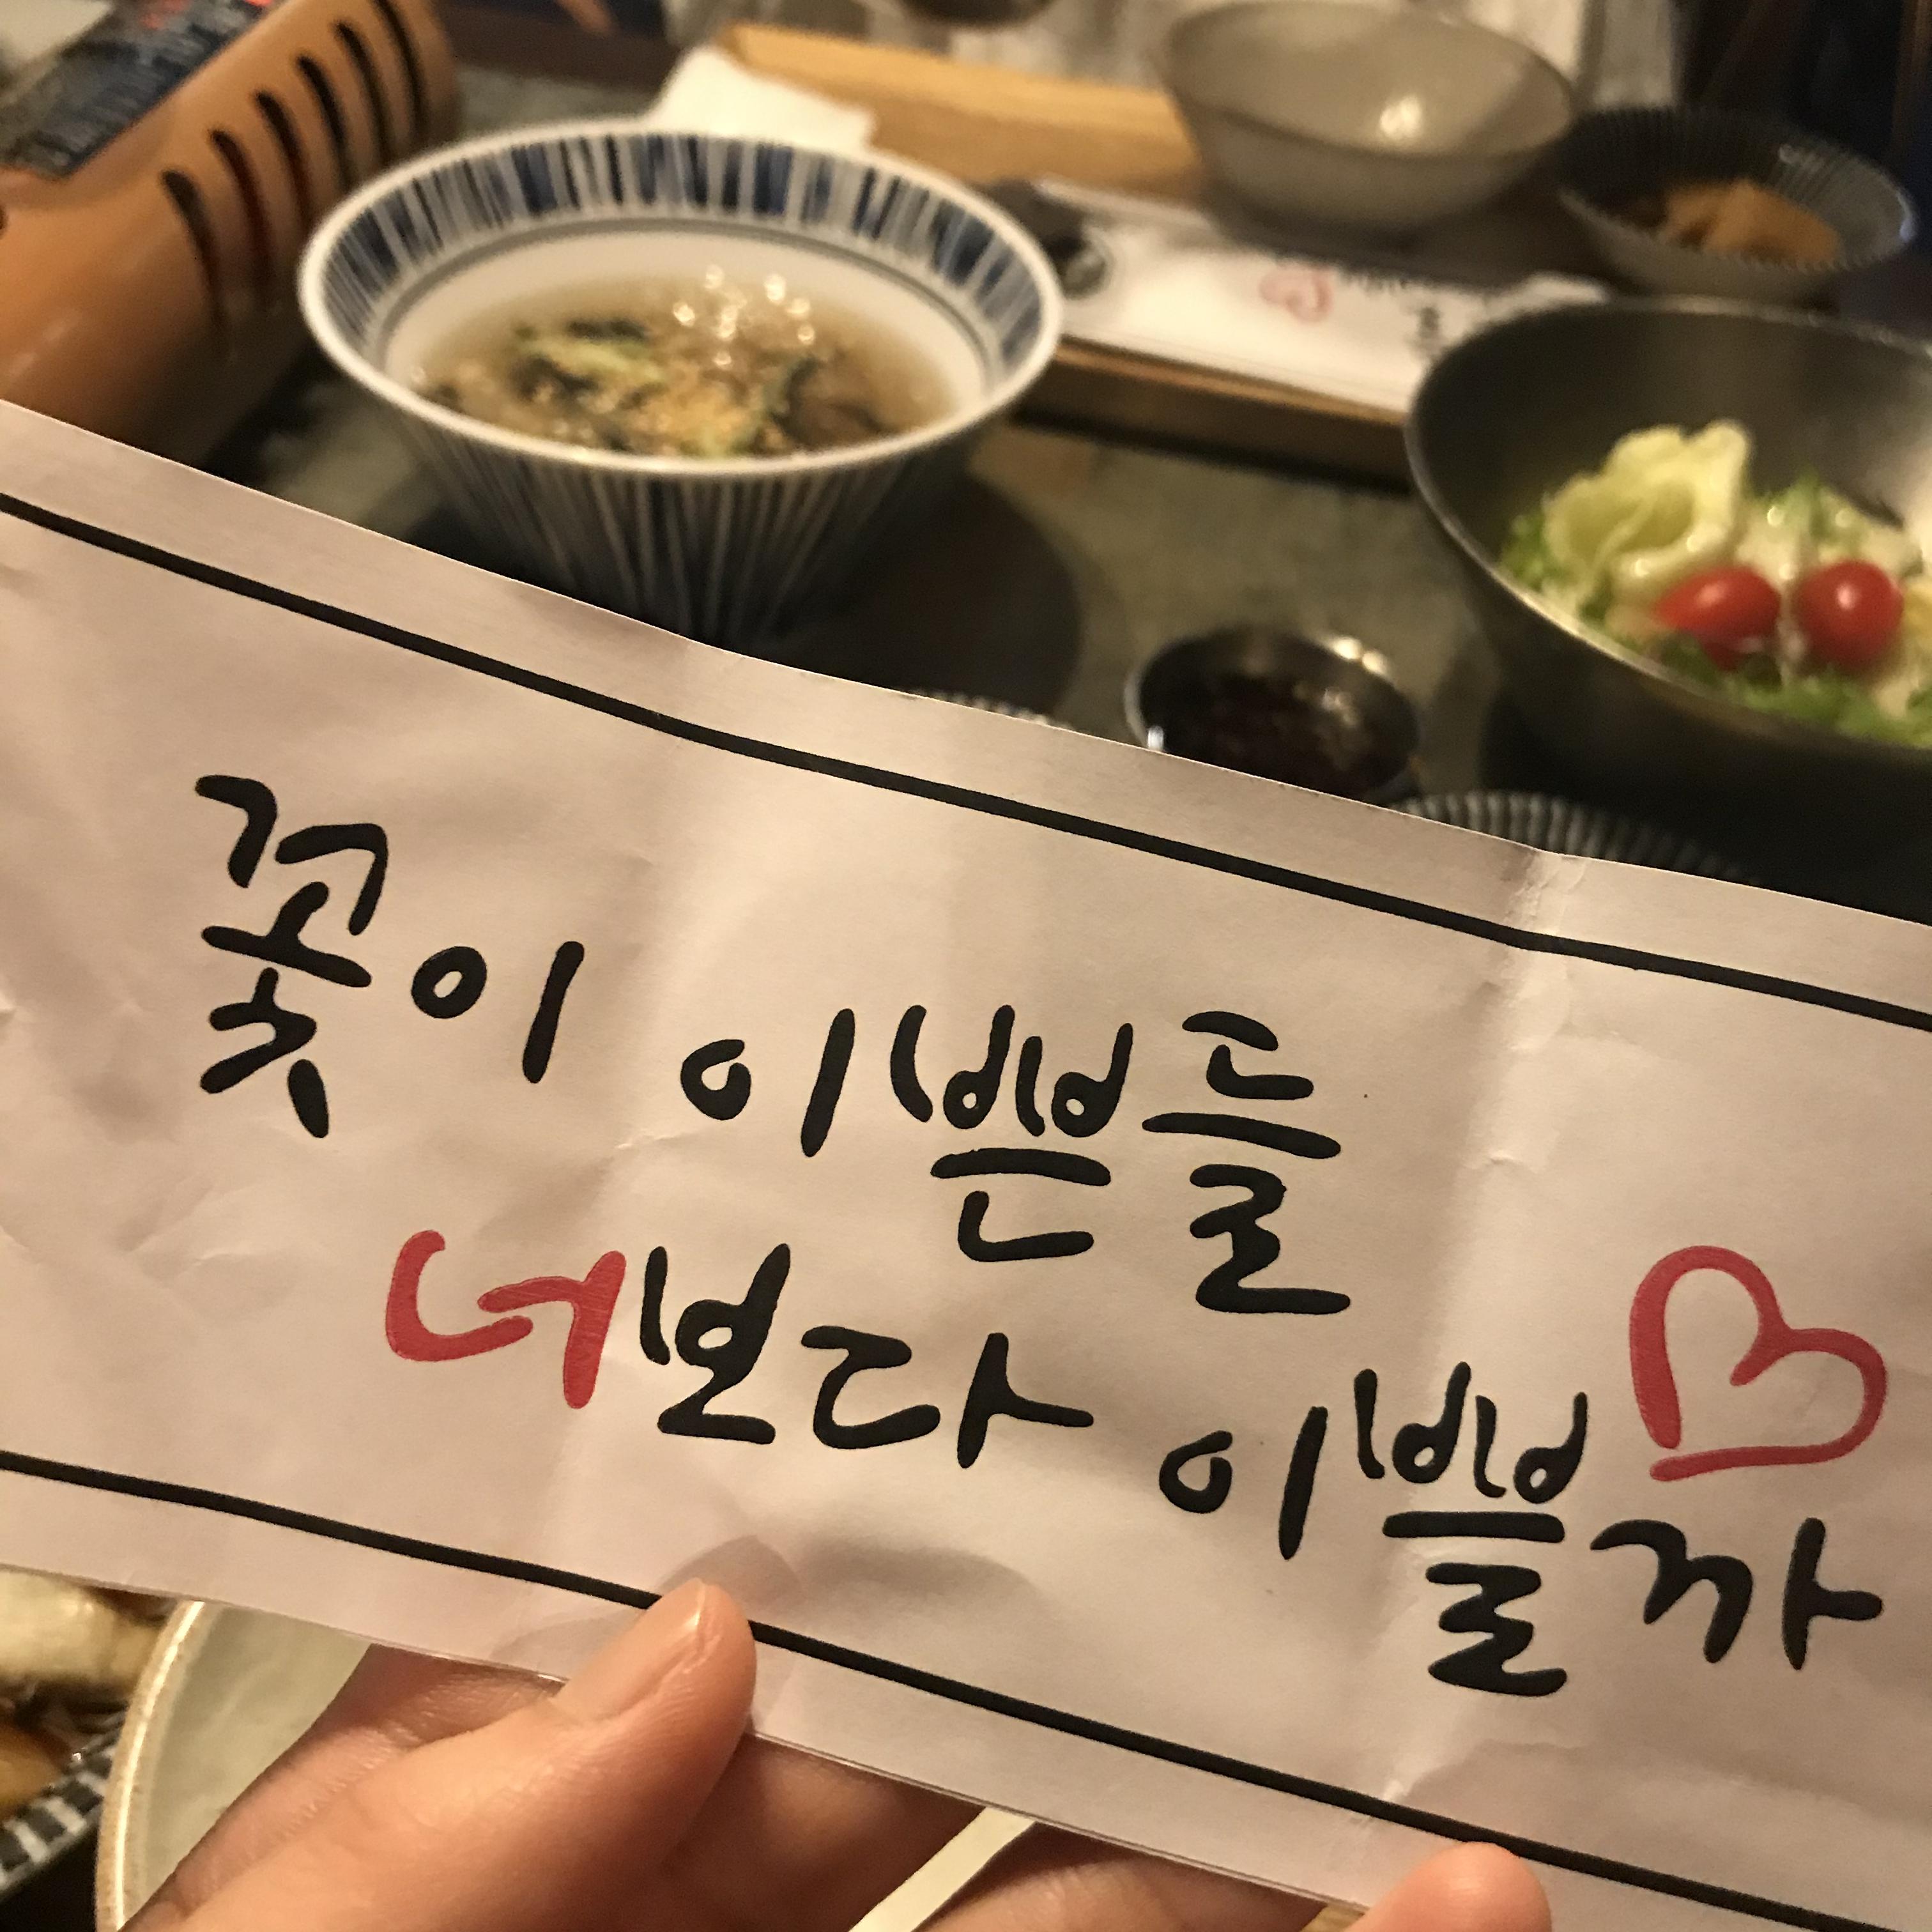 꽃이 이쁜들
너보다 이쁠까